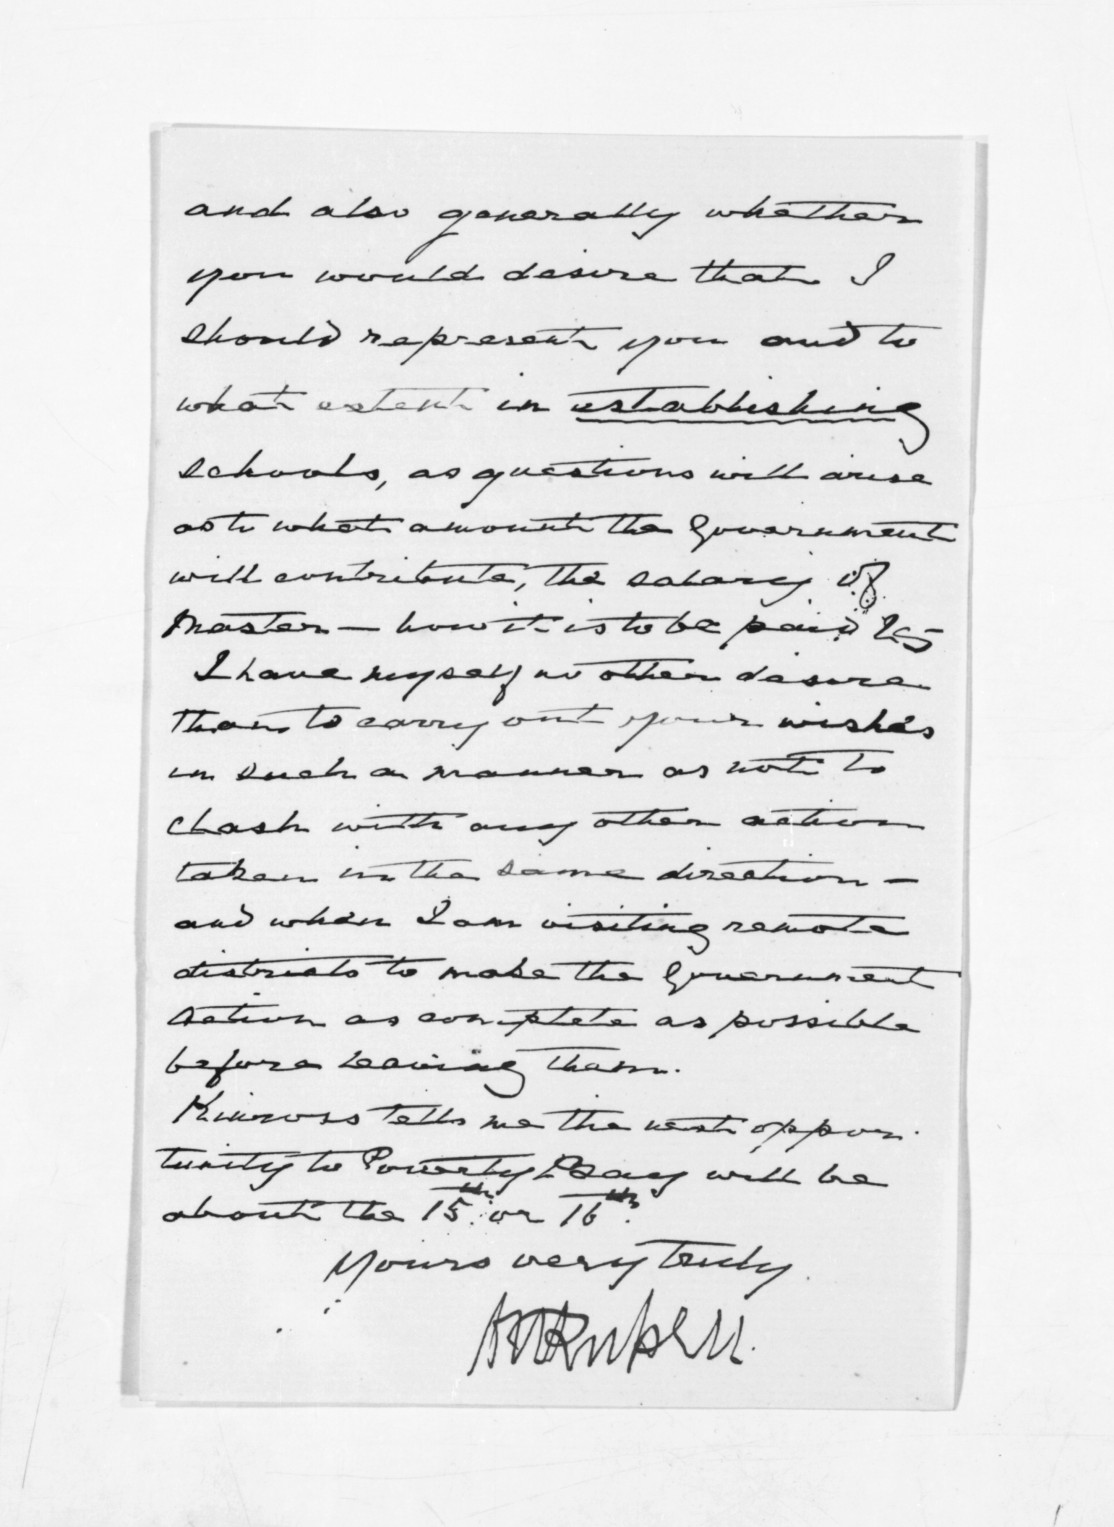 and also generally whether
you would desire that I
should represent you and to
what extent in establishing
schools, as questions will arise
as to what amount the Government
will contribute, the salary of
Master — how it is to be paid &c
I have myself no other desire
than to carry out your wishes
in such a manner as not to
clash with any other action
taken in the same direction —
and when I am visiting remote
districts to make the Government
action as complete as possible
before leaving them.
Kinross tells me the next oppor-
tunity to Poverty Bay will be
about the 15th or 16th.
Yours very truly
Russell